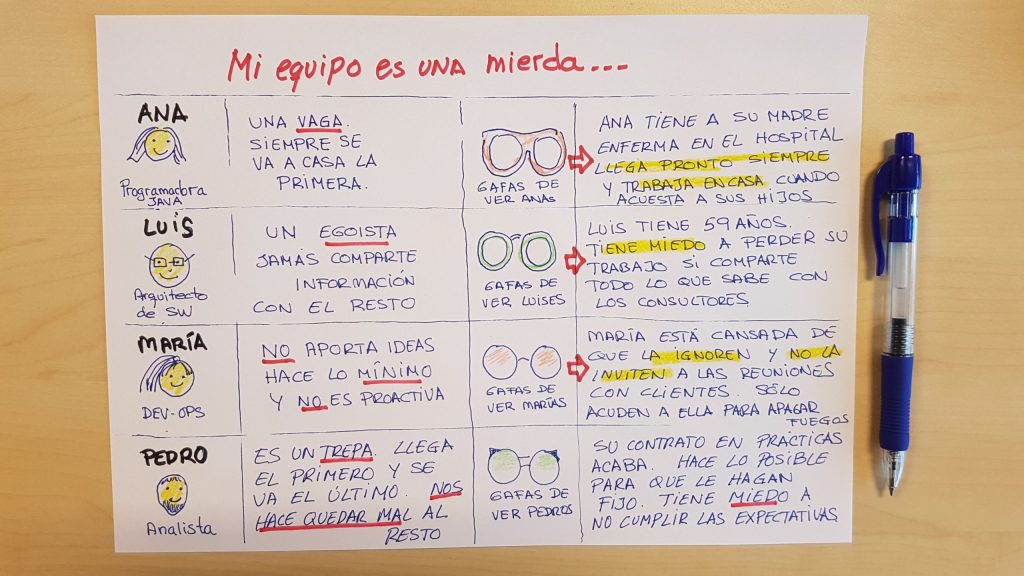 Mi equipo es una mierda...
ANA
Programadora
JAVA
UNA VAGA.
SIEMPRE SE
VA A CASA LA
PRIMERA.
GAFAS DE
VER ANAS
ANA TIENE A SU MADRE
ENFERMA EN EL HOSPITAL
LLEGA PRONTO SIEMPRE
Y TRABAJA EN CASA CUANDO
ACUESTA A SUS HIJOS
LUIS
Arquitecto
de SW
UN EGOISTA
JAMÁS COMPARTE
INFORMACIÓN
CON EL RESTO
GAFAS DE
VER LUISES
LUIS TIENE 59 AÑOS.
TIENE MIEDO A PERDER SU
TRABAJO SI COMPARTE
TODO LO QUE SABE CON
LOS CONSULTORES
MARÍA
DEV-OPS
NO APORTA IDEAS
HACE LO MÍNIMO
Y NO ES PROACTIVA
GAFAS DE
VER MARÍAS
MARÍA ESTÁ CANSADA DE
QUE LA IGNOREN Y NO LA
INVITEN A LAS REUNIONES
CON CLIENTES. SÓLO
ACUDEN A ELLA PARA APAGAR
FUEGOS
PEDRO
Analista
ES UN TREPA. LLEGA
EL PRIMERO Y SE
VA EL ÚLTIMO. NOS
HACE QUEDAR MAL AL
RESTO
GAFAS DE
VER PEDROS
SU CONTRATO EN PRÁCTICAS
ACABA. HACE LO POSIBLE
PARA QUE LE HAGAN
FIJO. TIENE MIEDO A
NO CUMPLIR LAS EXPECTATIVAS